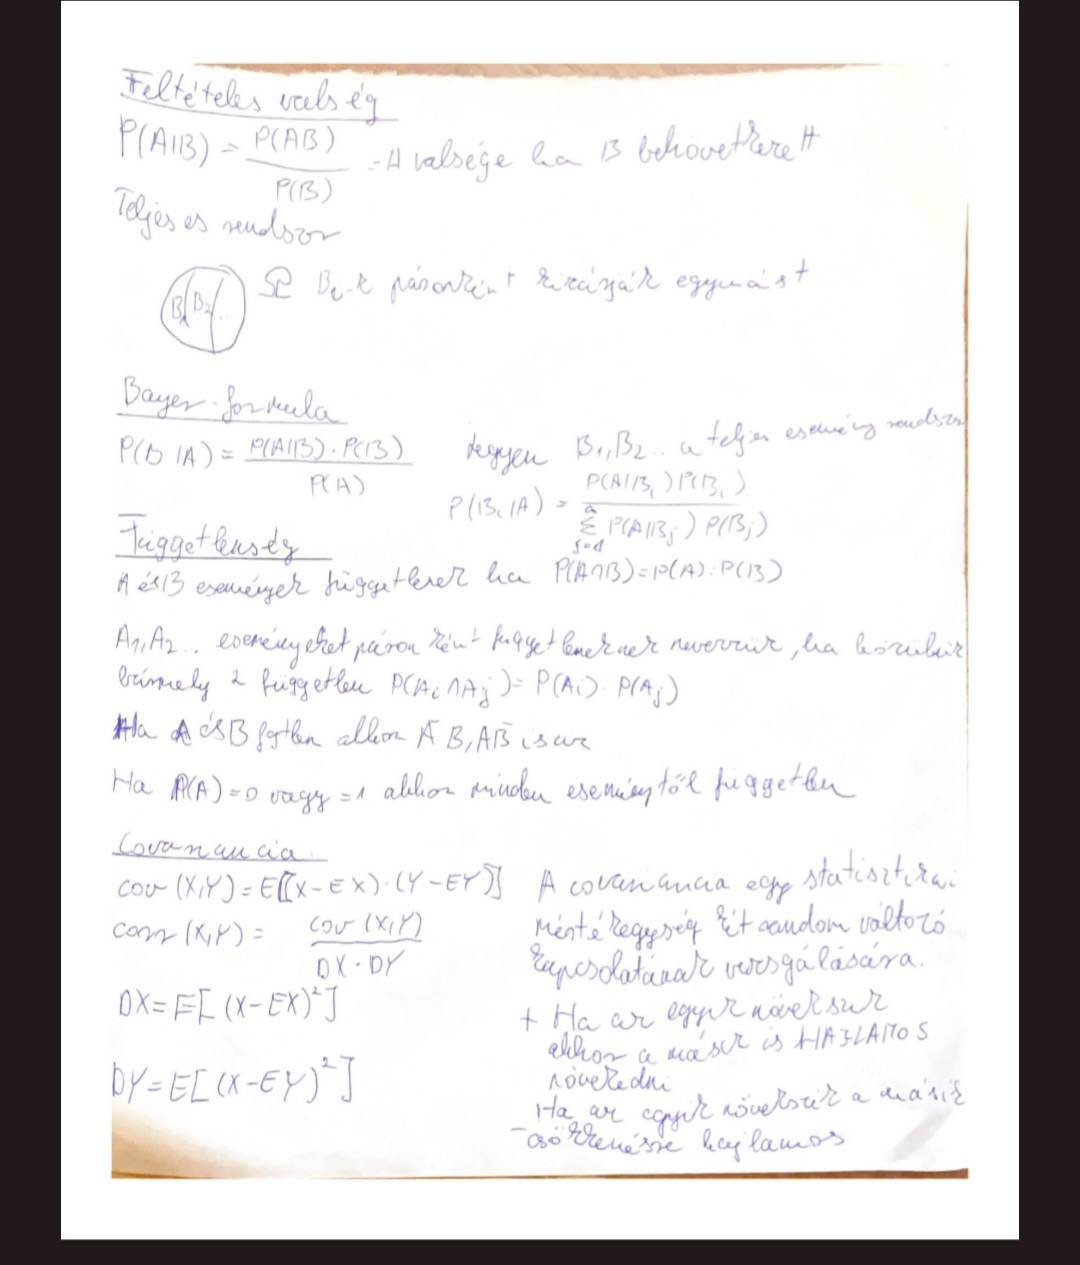 Feltételes valség
P(A|B) = P(AB) / P(B) = A valsége ha B bekövetkezett
Teljes es rendszer
B1 B2 ... Ω Bi-k páronként kizárják egymást
Bayes-formula
P(B|A) = P(A|B)·P(B) / P(A) legyen B1, B2 .. a teljes esemény rendszer
P(Bi|A) = P(A|Bi)P(Bi) / Σ P(A|Bj) P(Bj)
Függetlenség
A és B események függetlenek ha P(A∩B)=P(A)·P(B)
A1, A2 .. eseményeket páronként függetleneknek nevezzük, ha közülük
bármely 2 független P(Ai∩Aj) = P(Ai)·P(Aj)
Ha A és B fgtlen akkor A̅B, AB̅ is az
Ha P(A)=0 vagy =1 akkor minden eseménytől független
Covariancia
cov(X,Y) = E[(X-EX)·(Y-EY)]
corr(X,Y) = cov(X,Y) / DX·DY
DX = E[(X-EX)²]
DY = E[(X-EY)²]
A covariancia egy statisztikai
mértékegység két random változó
kapcsolatának vizsgálására.
+ Ha az egyik növekszik
akkor a másik is HAJLAMOS
növekedni
Ha az egyik növekszik a másik
- csökkenésre hajlamos